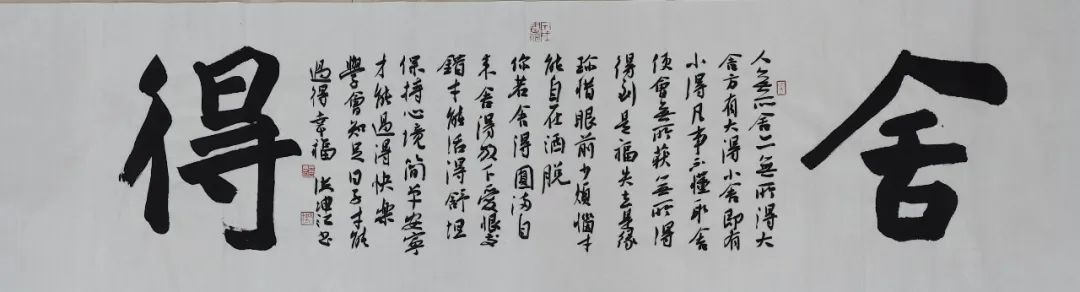 舍
人無所舍二無所得大
舍方有大得小舍即有
小得凡事不懂取舍
便會無所获無所得
得到是福失去是緣
珍惜眼前少煩惱才
能自在洒脱
你若舍得圓滿自
来舍得放下愛恨
錯才能活得舒坦
保持心境简单安寧
才能過得快樂
學會知足日子才能
過得幸福
得